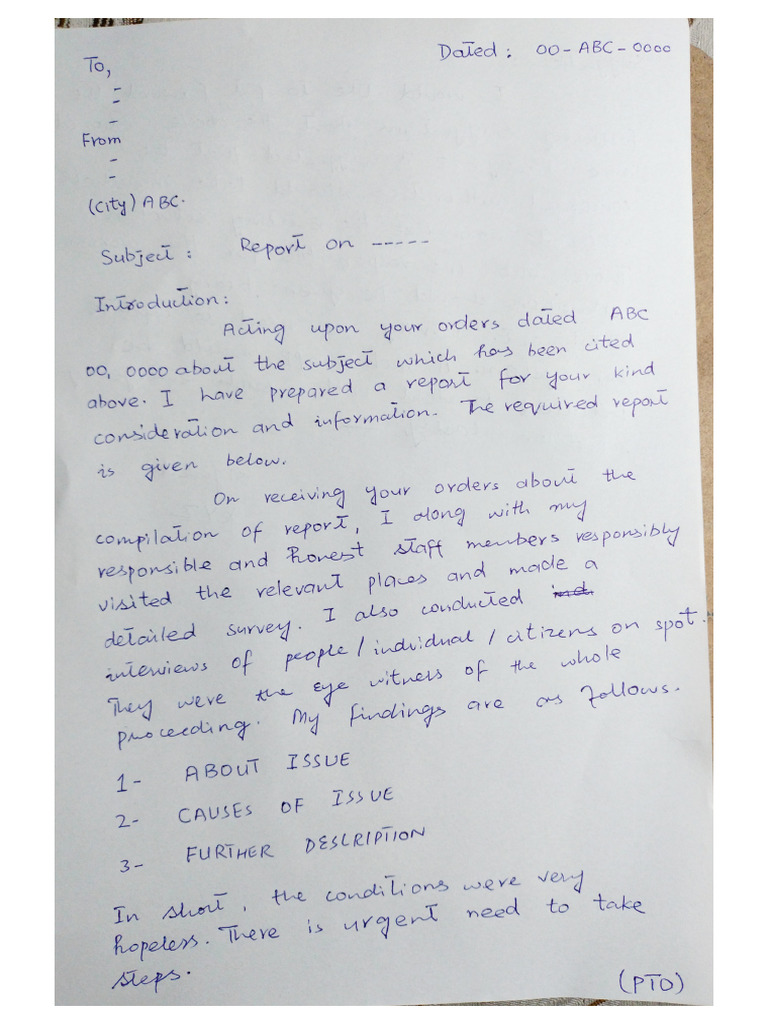 Dated: 00-ABC-0000
To,
-
-
-
From
-
-
(City) ABC.
Subject: Report on -----
Introduction:
Acting upon your orders dated ABC
00, 0000 about the subject which has been cited
above. I have prepared a report for your kind
consideration and information. The required report
is given below.
On receiving your orders about the
compilation of report, I along with my
responsible and honest staff members responsibly
visited the relevant places and made a
detailed survey. I also conducted
interviews of people/indvidual/citizens on spot.
They were the eye witness of the whole
proceeding. My findings are as follows.
1- ABOUT ISSUE
2- CAUSES OF ISSUE
3- FURTHER DESCRIPTION
In short, the conditions were very
hopeless. There is urgent need to take
steps.
(PTO)